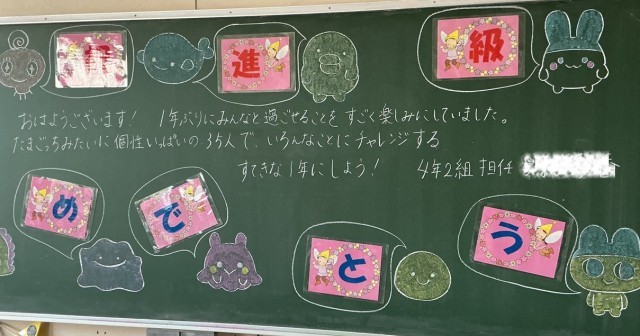 進 級
おはようございます! 1年ぶりにみんなと過ごせることを すごく楽しみにしていました。
たまごっちみたいに個性いっぱいの35人で、いろんなことにチャレンジする
すてきな1年にしよう! 4年2組 担任
め で と う